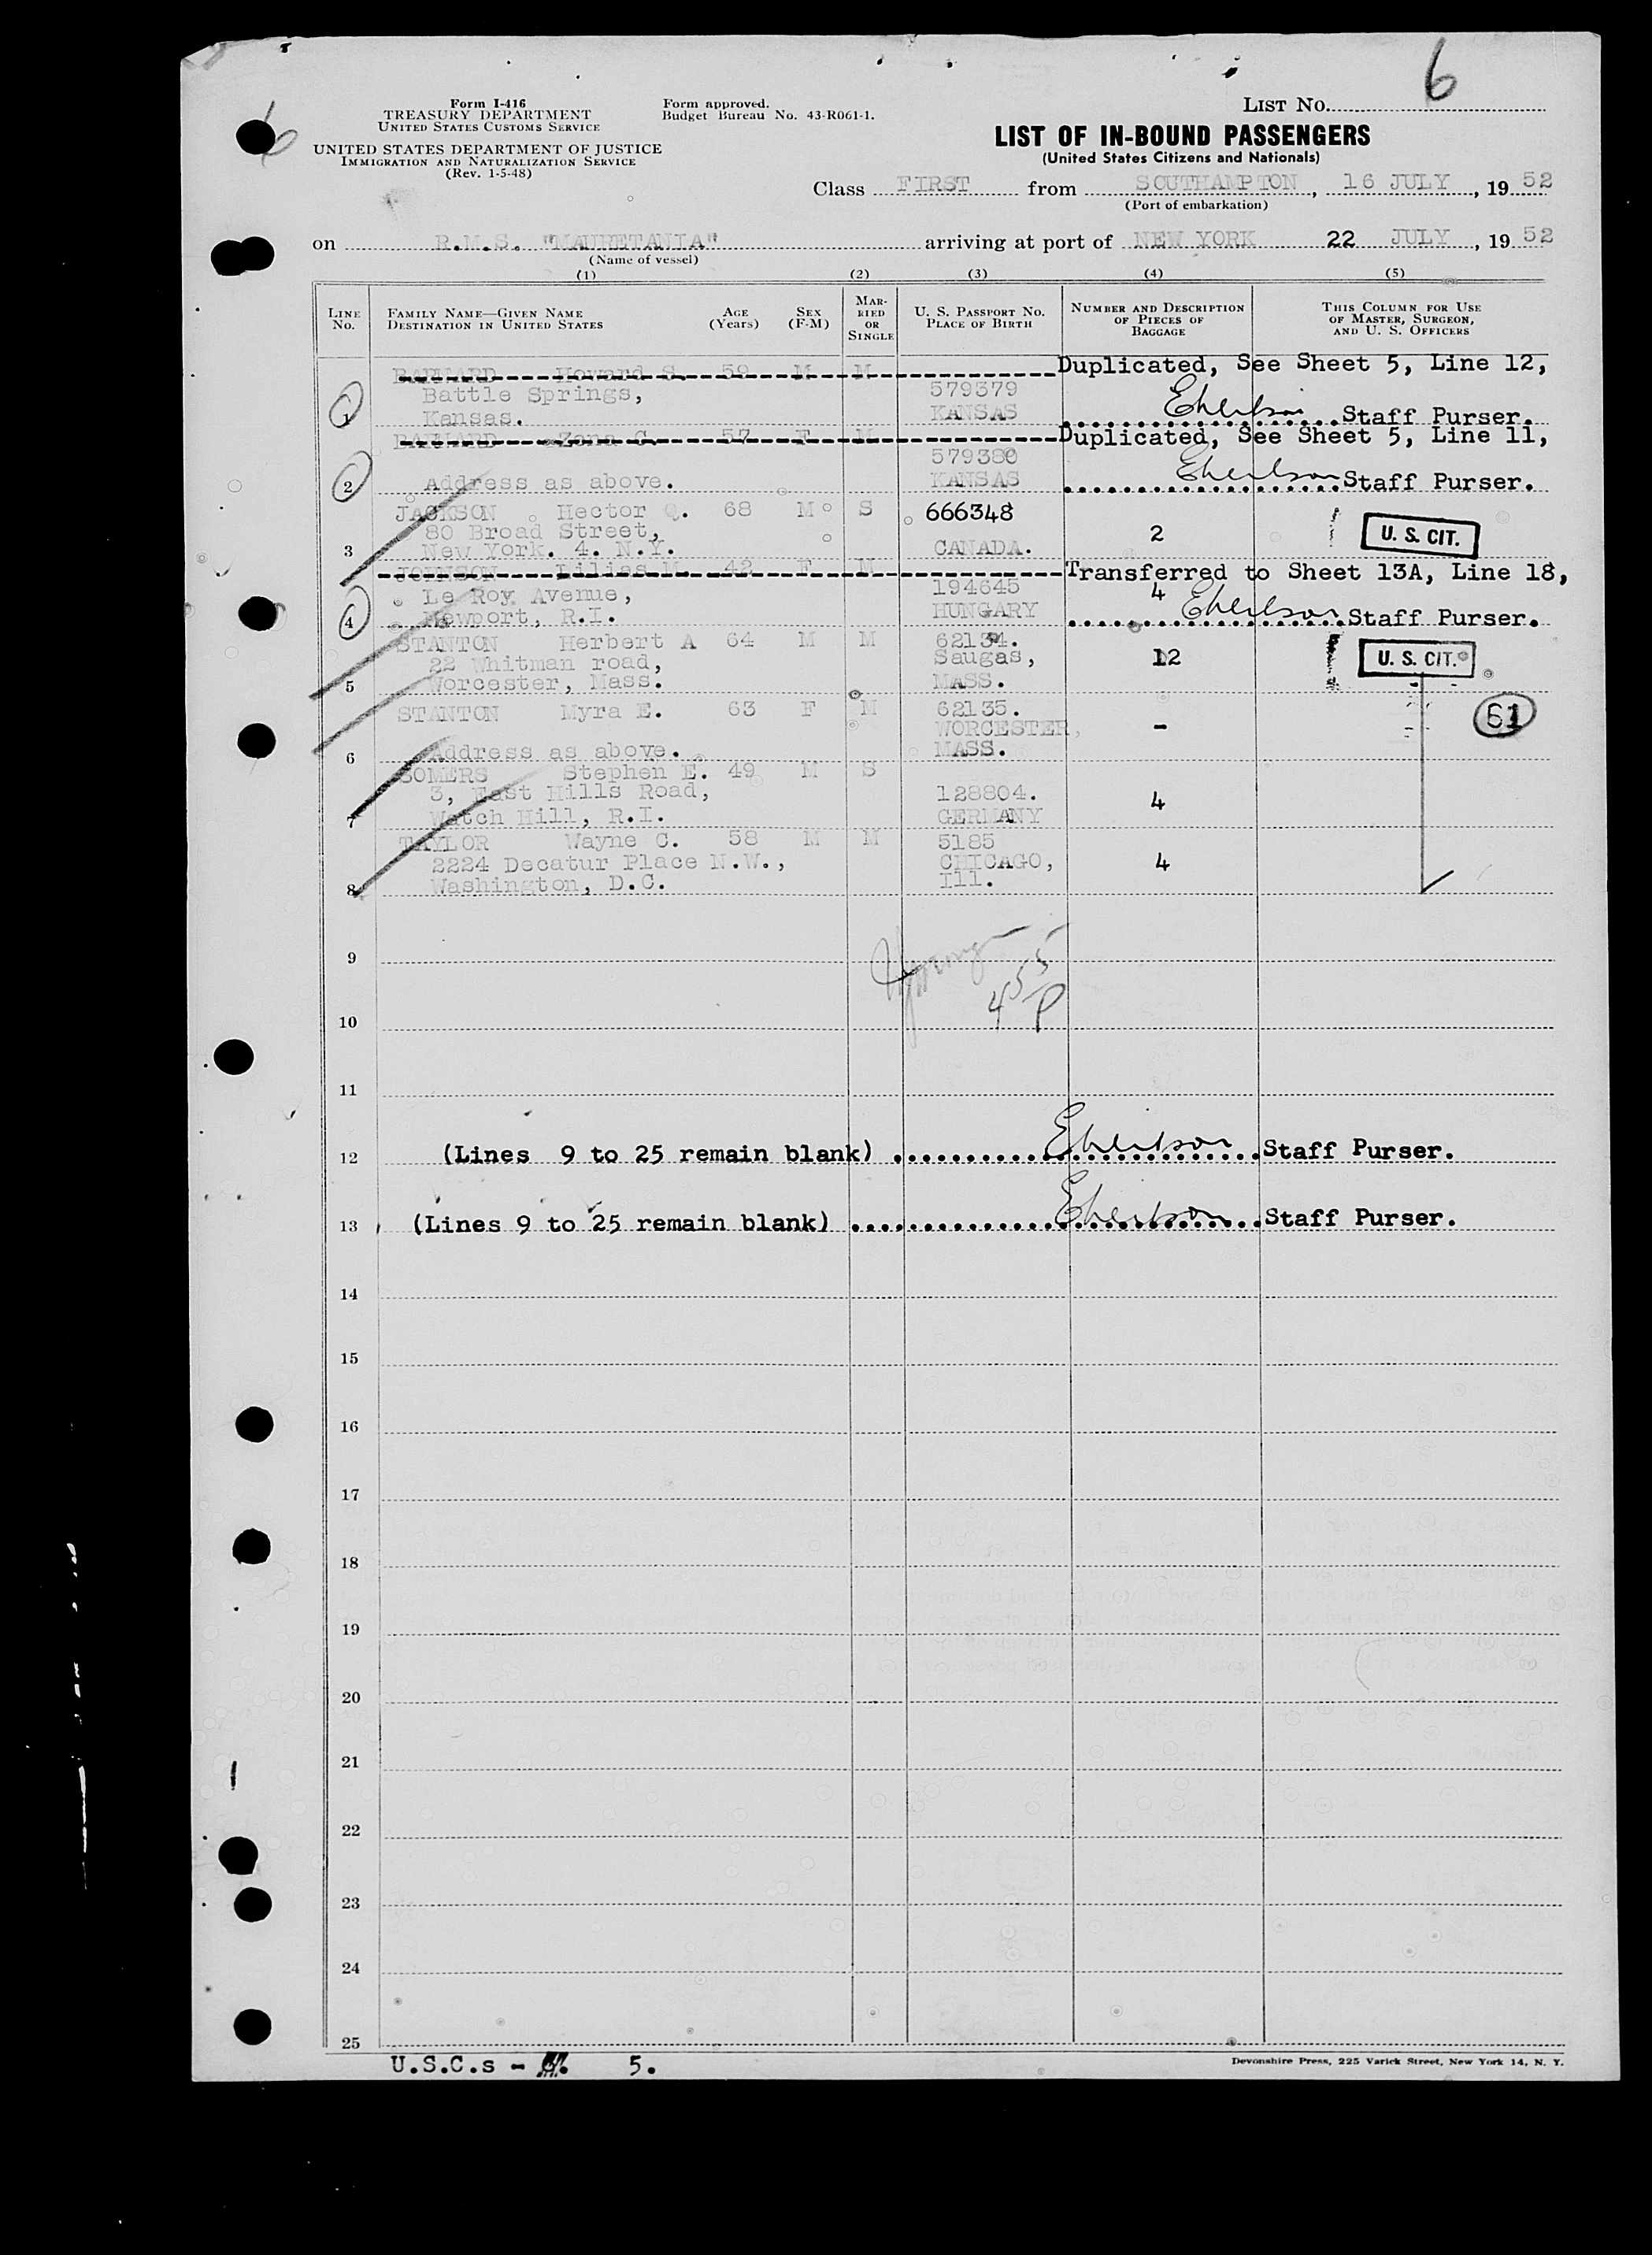 6
Form I-416
TREASURY DEPARTMENT
UNITED STATES CUSTOMS SERVICE
UNITED STATES DEPARTMENT OF JUSTICE
IMMIGRATION AND NATURALIZATION SERVICE
(Rev. 1-5-48)
Form approved.
Budget Bureau No. 43-R061-1.
LIST NO. 6
LIST OF IN-BOUND PASSENGERS
(United States Citizens and Nationals)
Class FIRST from SOUTHAMPTON, 16 JULY, 19 52
(Port of embarkation)
on R.M.S. "MAURETANIA" arriving at port of NEW YORK 22 JULY, 19 52
(Name of vessel)
(1) (2) (3) (4) (5)
LINE NO.
FAMILY NAME—GIVEN NAME
DESTINATION IN UNITED STATES
AGE (Years)
SEX (F-M)
MARRIED OR SINGLE
U. S. PASSPORT NO.
PLACE OF BIRTH
NUMBER AND DESCRIPTION OF PIECES OF BAGGAGE
THIS COLUMN FOR USE OF MASTER, SURGEON, AND U. S. OFFICERS
BARNARD Howard S. 59 M M Duplicated, See Sheet 5, Line 12,
Battle Springs, 579379
1 Kansas. KANSAS Staff Purser.
BARNARD Zona C. 57 F M Duplicated, See Sheet 5, Line 11,
579380
2 Address as above. KANSAS Staff Purser.
JACKSON Hector Q. 68 M S 666348
80 Broad Street, 2 U. S. CIT.
3 New York. 4. N.Y. CANADA.
JOHNSON Lilias M. 42 F M Transferred to Sheet 13A, Line 18,
Le Roy Avenue, 194645 4
4 Newport, R.I. HUNGARY Staff Purser.
STANTON Herbert A 64 M M 62134.
22 Whitman road, Saugas, 12 U. S. CIT.
5 Worcester, Mass. MASS.
STANTON Myra E. 63 F M 62135. 61
WORCESTER, -
6 Address as above. MASS.
SOMERS Stephen E. 49 M S
3, East Hills Road, 128804. 4
7 Watch Hill, R.I. GERMANY
TAYLOR Wayne C. 58 M M 5185
2224 Decatur Place N.W., CHICAGO, 4
8 Washington, D.C. Ill.
9
455 P
10
11
12 (Lines 9 to 25 remain blank) Staff Purser.
13 (Lines 9 to 25 remain blank) Staff Purser.
14
15
16
17
18
19
20
21
22
23
24
25
U.S.C.s - 5.
Devonshire Press, 225 Varick Street, New York 14, N. Y.